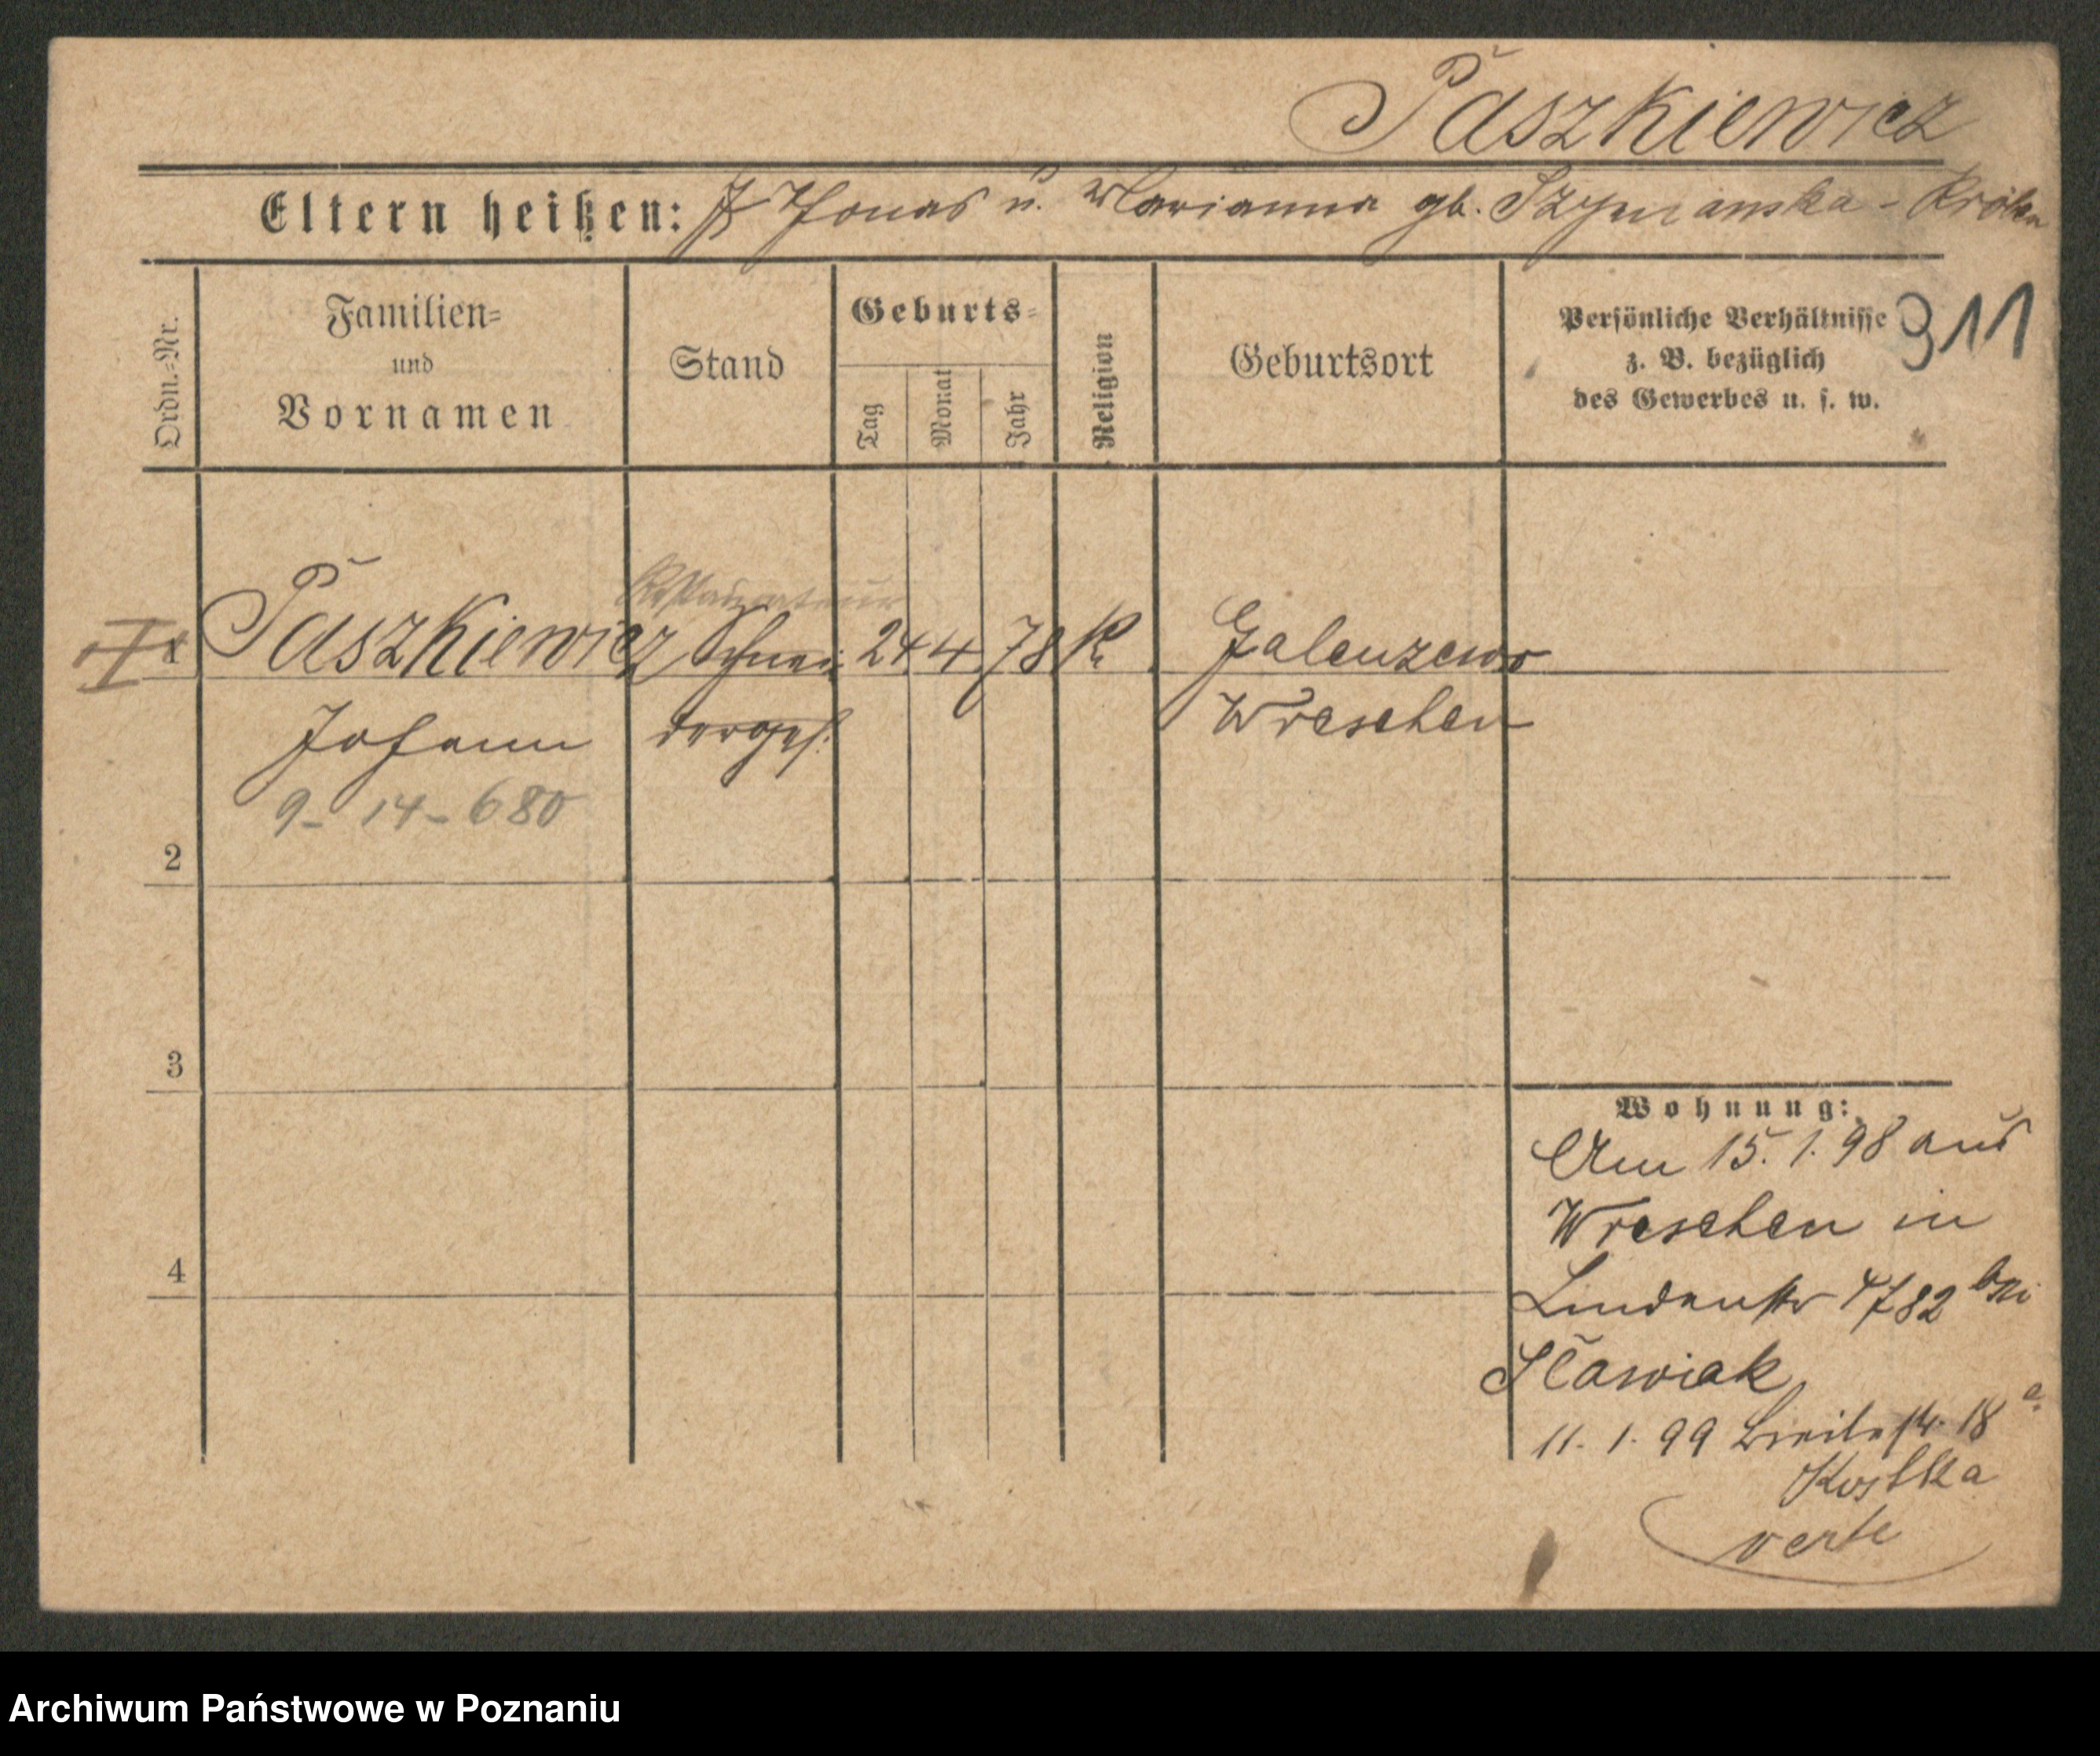 Paszkiewicz
Eltern heißen: Thomas u. Marianna gb. Szymanska - 
Ordn.-Nr.
Familien-
und
Vornamen
Stand
Geburts-
Tag
Monat
Jahr
Religion
Geburtsort
Persönliche Verhältnisse
z. B. bezüglich
des Gewerbes u. s. w.
311
Restaurateur
1 Paszkiewicz Schnei- 24 4 78 K. Galenzewo
Johann dergs. Wreschen
9-14-680
2
3
4
Wohnung:
Am 15. 1. 98 aus
Wreschen in
Lindenstr 4/82 bei
Slawiak
11. 1. 99 Breitestr. 18 a
Kostka
verte
Archiwum Państwowe w Poznaniu